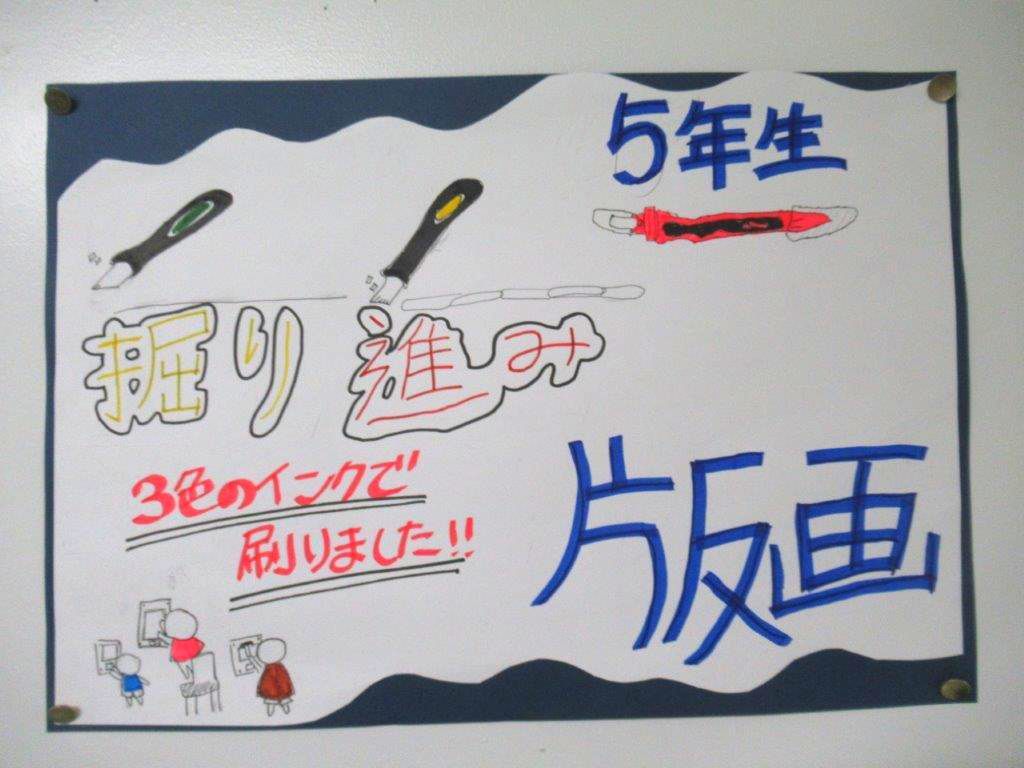 5年生
掘り進み
版画
3色のインクで
刷りました!!